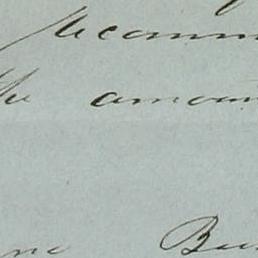 Recomm
the amoun
ne Bu